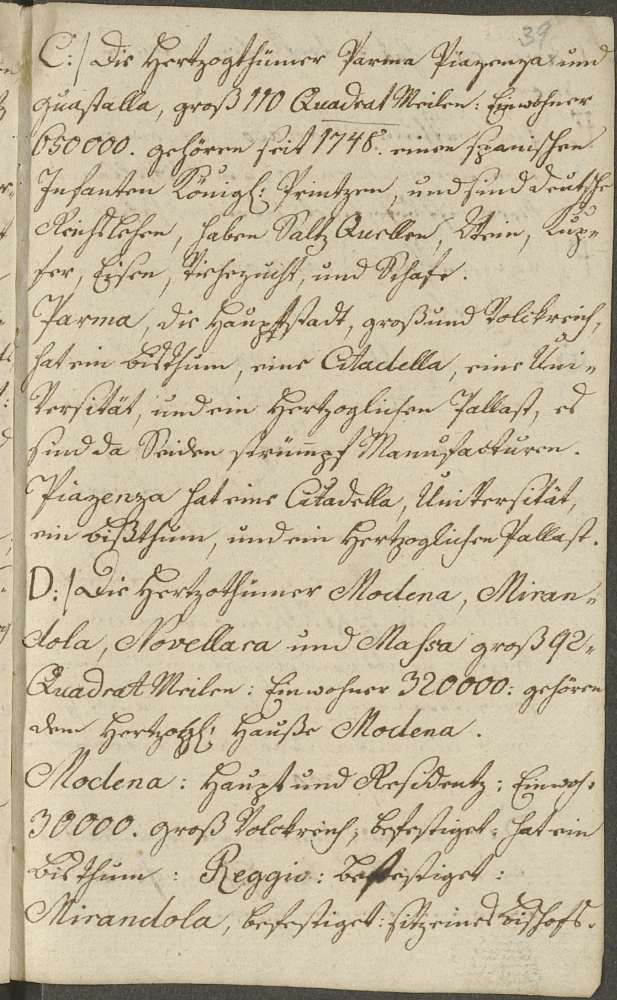 39
C:/ Die Hertzogthümer Parma Piazenza und
guastalla, groß 110 Quadrat Meilen: Einwohner
650000. gehören seit 1748. einen spanischen
Infanten Königl: Printzen, und sind deutsche
Reichslehen, haben Saltz Quellen, Wein, Kup-
fer, Eisen, Viehezucht, und Schafe.
Parma, die Hauptstadt, groß und Volckreich,
hat ein bisthum, eine Citadella, eine Uni-
Versität, und ein Hertzoglichen Pallast, es
sind da Seiden strümpf Manufacturen.
Piazenza hat eine Citadella, UniVersität,
ein bißthum, und ein Hertzoglichen Pallast.
D:/ Die Hertzothümer Modena, Miran-
dola, Novellara und Massa groß 92-
Quadrat Meilen: Einwohner 320000: gehören
dem Hertzogl: Hauße Modena.
Modena: Haupt und Residentz: Einwoh:
30000. groß Volckreich, befestiget: hat ein
bisthum: Reggio: befestiget:
Mirandola, befestiget: sitz eines bischofs.